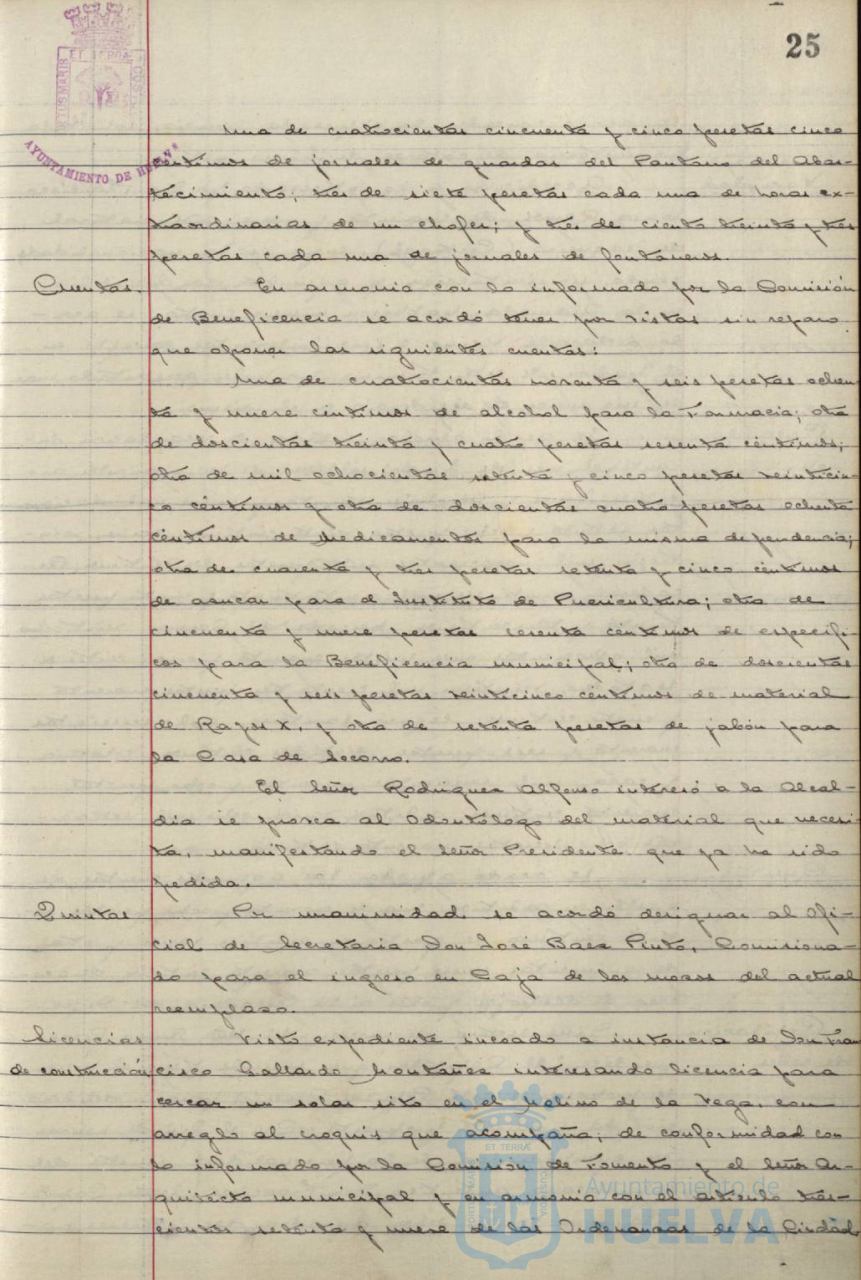 25
AYUNTAMIENTO DE HUELVA
Una de cuatrocientas cincuenta y cinco pesetas cinco
céntimos de jornales de guardas del Pantano del Abas-
tecimiento; tres de siete pesetas cada una de horas ex-
traordinarias de un chofer; y tres de ciento treinta y tres
pesetas cada una de jornales de fontaneros.
Cuentas. En armonia con lo informado por la Comisión
de Beneficencia se acordó tener por vistas sin reparo
que oponer las siguientes cuentas:
Una de cuatrocientas noventa y seis pesetas ochen-
ta y nueve céntimos de alcohol para la Farmacia; otra
de doscientas treinta y cuatro pesetas sesenta céntimos;
otra de mil ochocientas setenta y cinco pesetas veinticin-
co céntimos y otra de doscientas cuatro pesetas ochenta
céntimos de medicamentos para la misma dependencia;
otra de cuarenta y tres pesetas setenta y cinco céntimos
de azucar para el Instituto de Puericultura; otra de
cincuenta y nueve pesetas sesenta céntimos de específi-
cos para la Beneficencia municipal; otra de doscientas
cincuenta y seis pesetas veinticinco céntimos de material
de Rayos X, y otra de setenta pesetas de jabón para
la Casa de Socorro.
El Señor Rodriguez Alfonso interesó a la Alcal-
día se provea al Odontólogo del material que necesi-
ta, manifestando el Señor Presidente que ya ha sido
pedida.
Quintas Por unanimidad se acordó designar al Ofi-
cial de Secretaria Don José Baez Pinto, Comisiona-
do para el ingreso en Caja de los mozos del actual
reemplazo.
Licencias Visto expediente incoado a instancia de Don Fran
de construcción cisco Gallardo Montañez interesando licencia para
cercar un solar sito en el Molino de la Vega, con
arreglo al croquis que acompaña; de conformidad con
lo informado por la Comisión de Fomento y el Señor Ar-
quitecto municipal y en armonia con el articulo tres-
cientos setenta y nueve de las Ordenanzas de la Ciudad
Ayuntamiento de
HUELVA